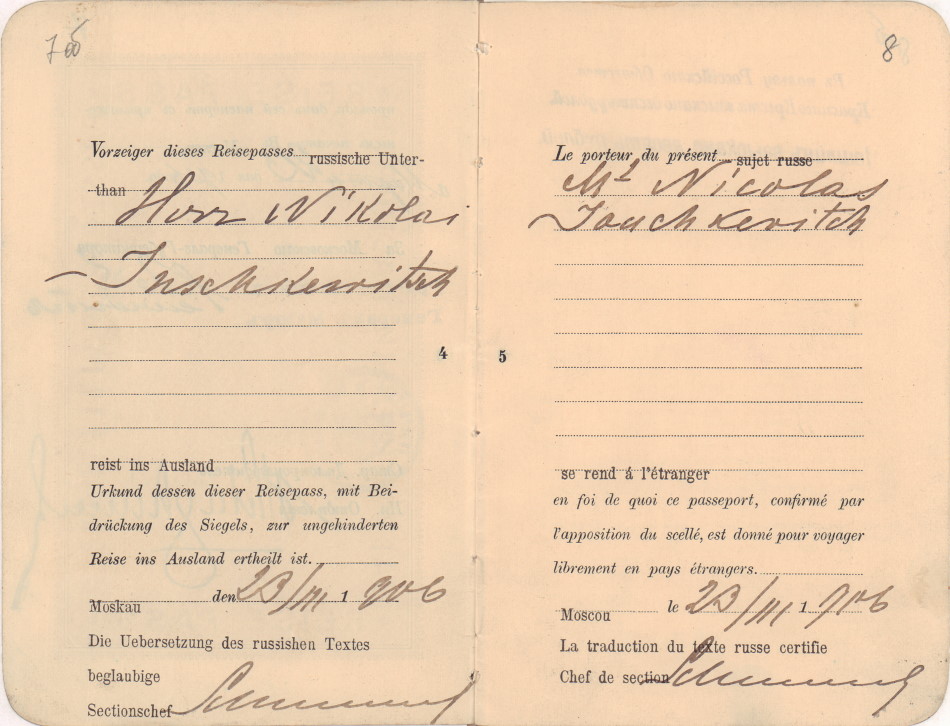 Vorzeiger dieses Reisepasses russische Unter-
than Herr Nikolai
Juschkewitsch
4
reist ins Ausland
Urkund dessen dieser Reisepass, mit Bei-
drückung des Siegels, zur ungehinderten
Reise ins Ausland ertheilt ist.
Moskau den 23/III 1 906
Die Uebersetzung des russishen Textes
beglaubige
Sectionschef
8
Le porteur du présent sujet russe
Mr Nicolas
Jouchkevitch
5
se rend á l'étranger
en foi de quoi ce passeport, confirmé par
l'apposition du scellé, est donné pour voyager
librement en pays étrangers.
Moscou le 23/III 1 906
La traduction du texte russe certifie
Chef de section